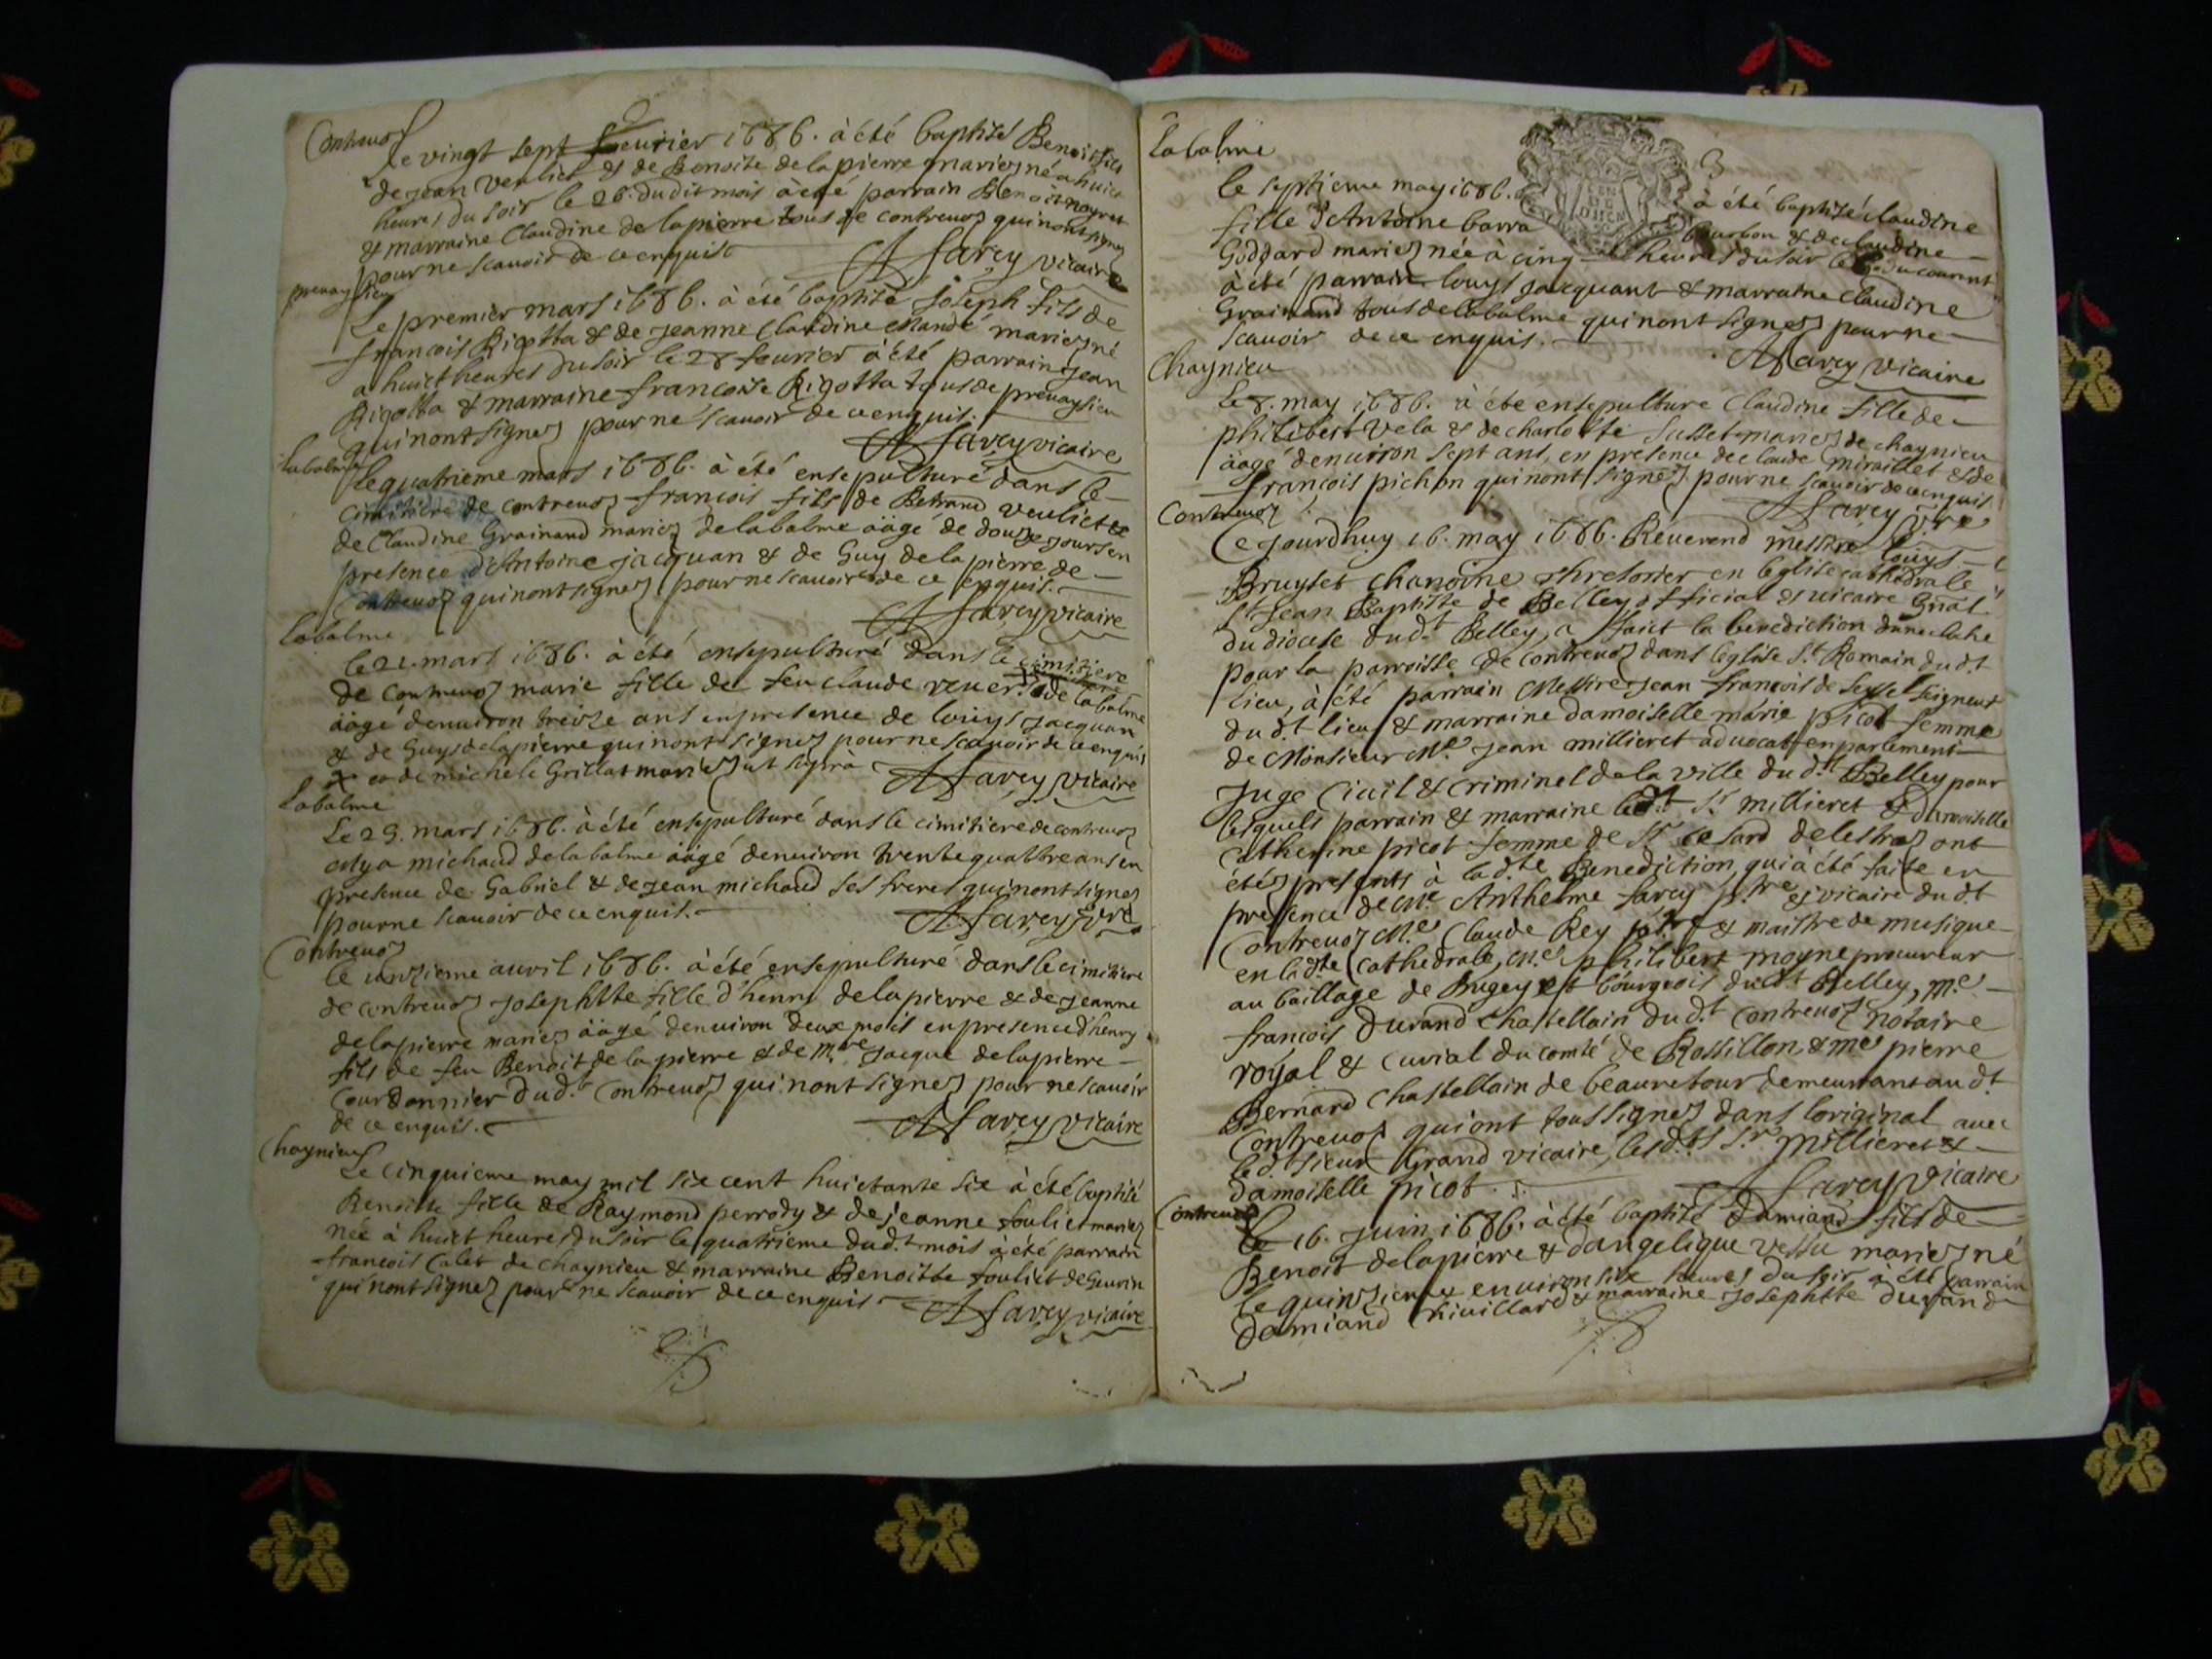 Contreuoz
Le vingt sept feurier 1686. à été baptisé Benoit fils
de Jean Veuliet & de Benoite de la pierre mariez né a huict
heures du soir le 26. dudit mois à été parrain Benoit noyret
& marraine Claudine de la pierre tous de contreuoz qui nont signez
pour ne scauoir de ce enquis
A farcy vicaire
premeysieu
Le premier mars 1686. à été baptisé Joseph fils de
francois Rigotta & de Jeanne Claudine mariez né
a huict heures du soir le 28 feurier à été parrain Jean
Rigotta & marraine francoise Rigotta tous de
qui nont signez pour ne scauoir de ce enquis.
A farcy vicaire
Labalme
Le quatrieme mars 1686. à été ensepulturé dans le
cimitiere de contreuoz francois fils de Betrand veuliet &
de Claudine Grainand mariez delabalme äägé de douze jours en
presence d'Antoine jacquan & de Guy de la pierre de
Contreuoz qui nont signez pour ne scauoir de ce enquis.
A farcy vicaire
Labalme
le 21. mars 1686. à été ensepulturé dans le cimitiere
de contreuoz marie fille de feu claude de labalme
äägé denuiron treize ans en presence de louys jacquan
& de Guy delapierre qui nont signez pour ne scauoir de ce enquis
x & de michele Grillat mariez ut supra
A farcy vicaire
Labalme
Le 29. mars 1686. à été ensepulturé dans le cimitiere de contreuoz
michaud de la balme äägé denuiron trente quattre ans en
presence de Gabriel & de Jean michaud ses freres qui nont signez
pour ne scauoir de ce enquis.
A farcy ptre
Contreuoz
le unzieme auril 1686. à été ensepulturé dans le cimitiere
de contreuoz Josephtte fille d'henry de la pierre & de Jeanne
delapierre mariez äägé denuiron deux mois en presence d'henry
fils de feu Benoit de la pierre & de mtre Jacque delapierre
Courdonnier dud.t Contreuoz qui nont signez pour ne scauoir
de ce enquis.
A farcy vicaire
Chaynieu
Le cinquieme may mil six cent huictante six à été baptisé
Benoitte fille de Raymond perrody & de jeanne fouliet mariez
née à huict heures du soir le quatrieme dud.t mois à été parrain
francois Calet de chaynieu & marraine Benoitte fouliet de
qui nont signez pour ne scauoir de ce enquis
A farcy vicaire
Labalme
3
le septieme may 1686. à été baptisé claudine
fille d'Antoine barra bourbon & de claudine
Goddard mariez née à cinq heures du soir le du courent
à été parrain louys jacquant & marraine claudine
Grainand tous delabalme qui nont signez pour ne
scauoir de ce enquis.
A farcy vicaire
Chaynieu
Le 8. may 1686. à été ensepulturé Claudine fille de
philibert Vela & de charlotte susset mariez de chaynieu
äägé denuiron sept ans, en presence de claude miraillet & de
francois pichon qui nont signez pour ne scauoir de ce enquis
A farcy ptre
Contreuoz
Ce jourdhuy 16. may 1686. Réuerend messire louys
Bruyset chanoine thresorier en leglise cathedrale
St Jean Baptiste de Belley official & vicaire Gnal
du diocese dud.t Belley, a faict la benediction dune cloche
pour la parroisse de contreuoz dans leglise St. Romain dud.t
lieu, à été parrain Messire Jean francois de Seyssel seigneur
dud.t lieu & marraine damoiselle marie picot femme
de Monsieur Me. Jean millieret aduocat en parlement
juge Ciuil & criminel de la ville dud.t Belley pour
lesquels parrain & marraine led.t Sr millieret & damoiselle
Catherine picot femme de Sr Cesard delestraz ont
étéz presents à lad.te Benediction, qui à été faite en
presence de Me. Anthelme farcy ptre & vicaire dud.t
Contreuoz Me. Claude Rey ptre & maistre de musique
en lad.te Cathedrale, Me. philibert moyne procureur
au baillage de Bugey & bourgeois dud.t Belley, me
francois Durand chastellain dud.t Contreuoz notaire
royal & curial du comté de Rossillon & me pierre
Bernard chastellain de beauretour demeurant aud.t
Contreuoz qui ont tous signez dans loriginal auec
led.t sieur Grand vicaire, lesd.ts Sr millieret &
damoiselle picot.
A farcy vicaire
Contreuoz
Le 16. Juin 1686. à été baptisé Damiand fils de
Benoit delapierre & dangelique vessu mariez né
le quinzieme enuiron six heures du soir à été parrain
Damiand chiuillard & marraine Josephtte durand